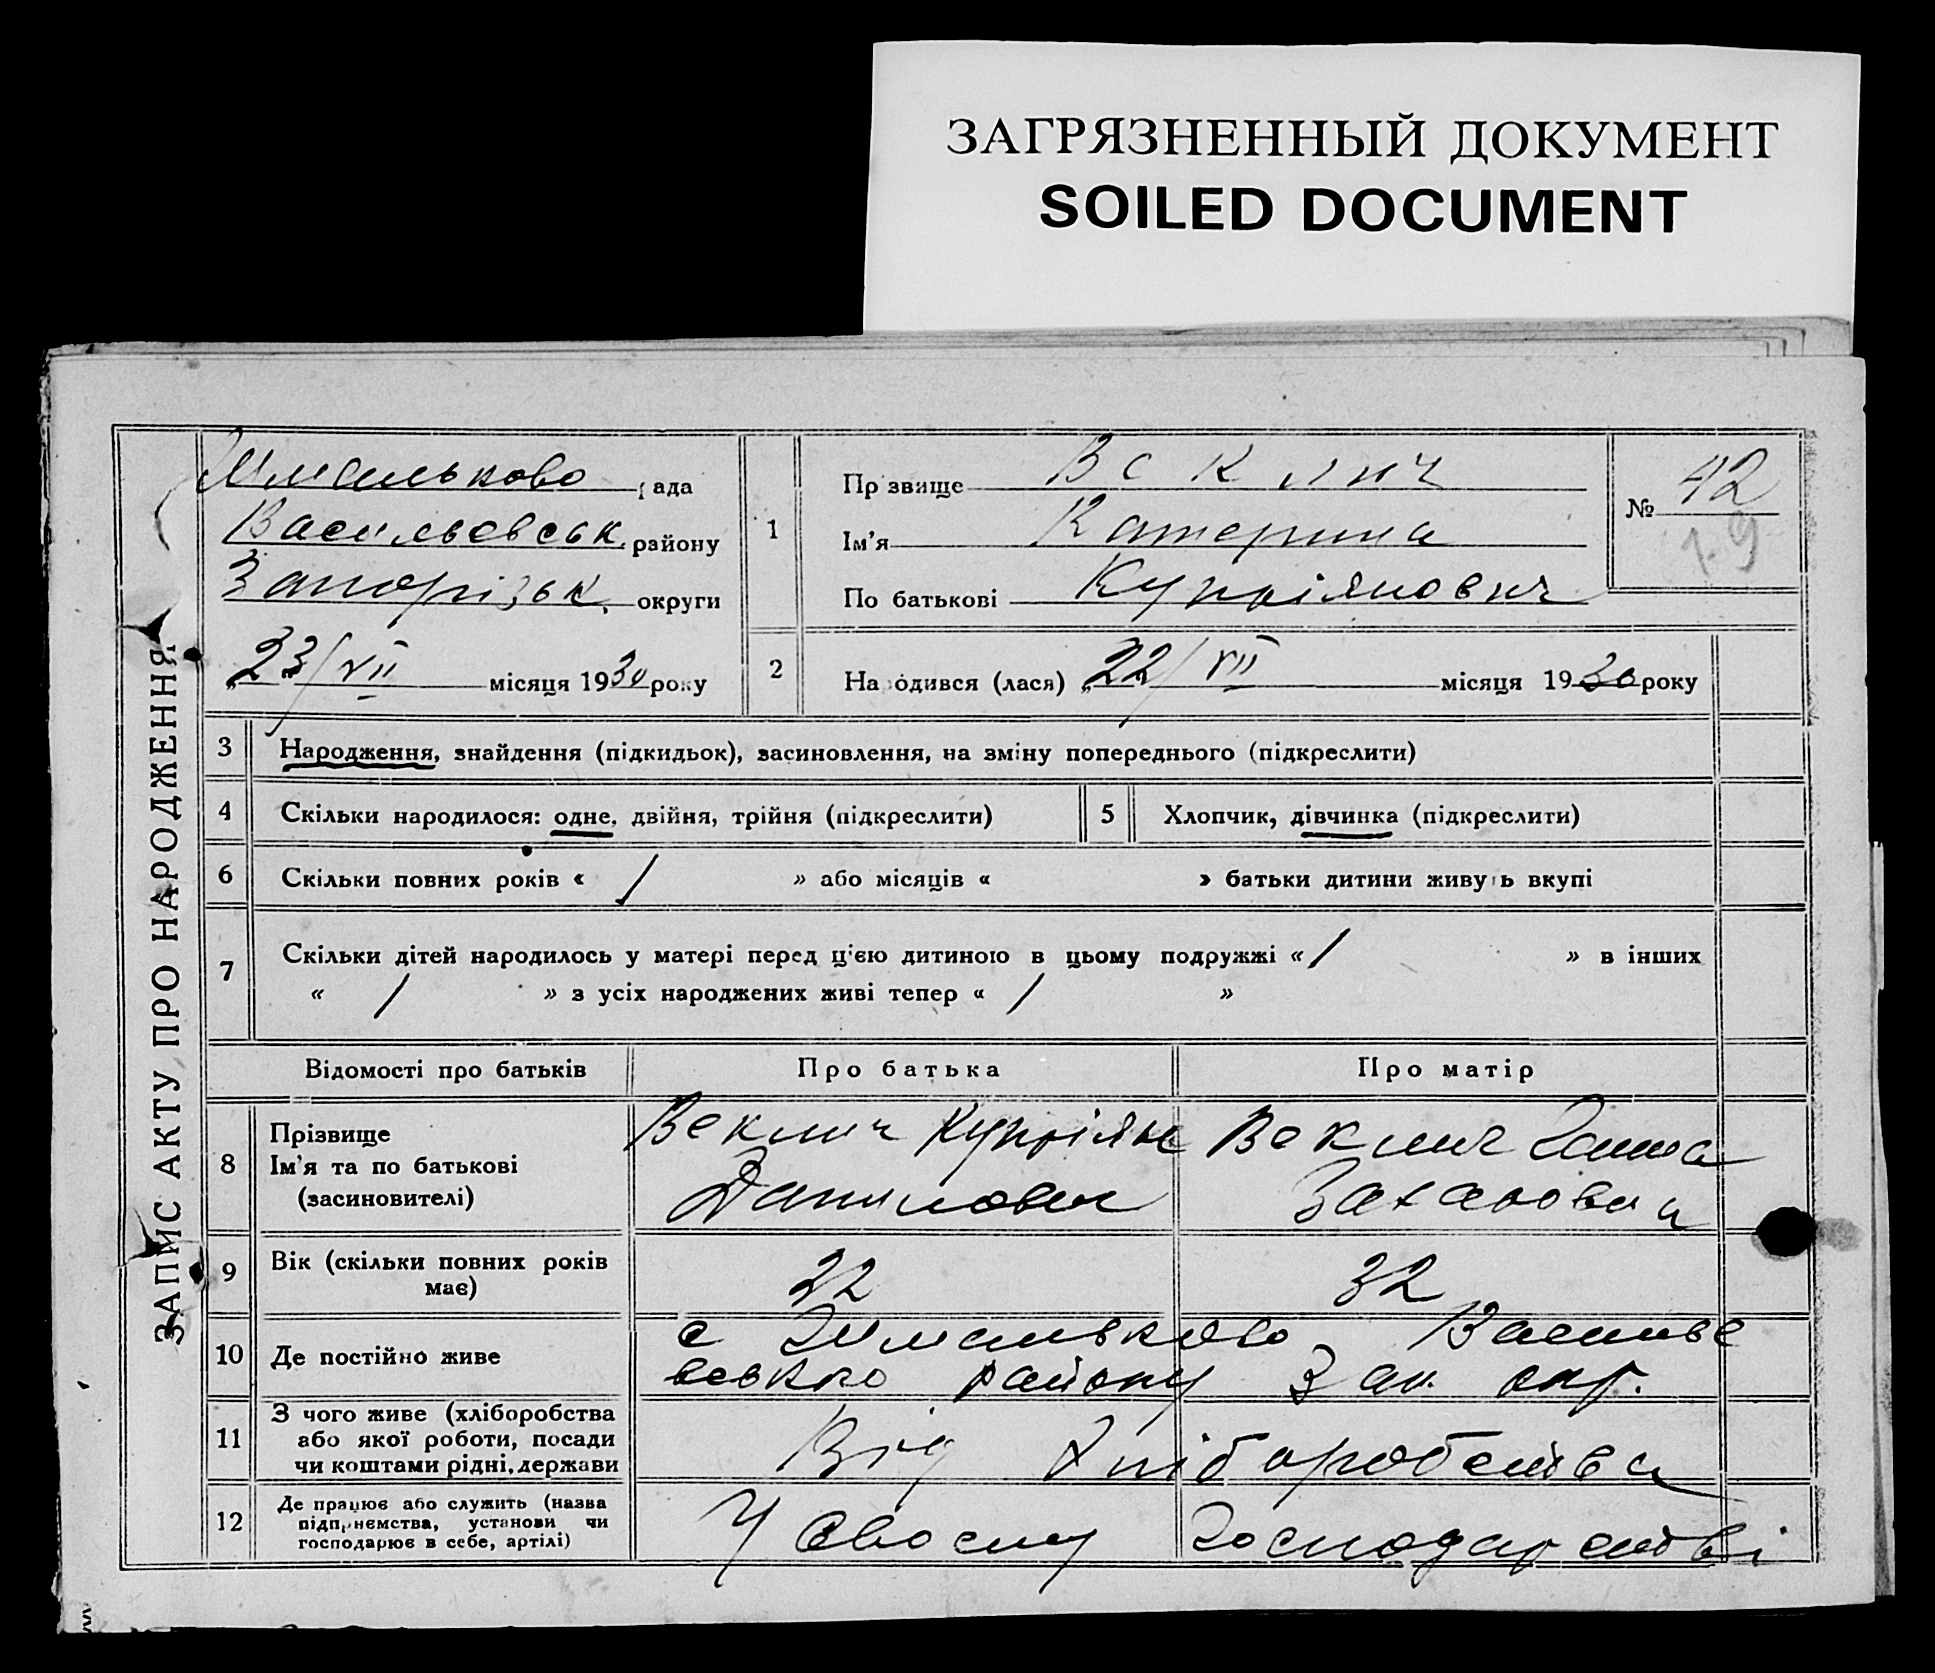 ЗАГРЯЗНЕННЫЙ ДОКУМЕНТ
SOILED DOCUMENT
ЗАПИС АКТУ ПРО НАРОДЖЕННЯ
рада
Васильевськ. району
Запорізьк. округи
„23/VII місяця 1930 року
1
Прізвище Веклич
Ім'я Катерина
По батькові Купріянович
№ 42
19
2
Народився (лася) „22/VII місяця 1930 року
3 Народження, знайдення (підкидьок), засиновлення, на зміну попереднього (підкреслити)
4 Скільки народилося: одне, двійня, трійня (підкреслити)
5 Хлопчик, дівчинка (підкреслити)
6 Скільки повних років « / » або місяців « » батьки дитини живуть вкупі
7 Скільки дітей народилось у матері перед ц'єю дитиною в цьому подружжі « / » в інших
« / » з усіх народжених живі тепер « / »
Відомості про батьків
Про батька
Про матір
8 Прізвище
Ім'я та по батькові
(засиновителі)
Веклич Купріян
Данилович
Веклич Ганна
Захаровна
9 Вік (скільки повних років
має)
32
32
10 Де постійно живе
с Василье
вского району Зап. окр.
11 З чого живе (хліборобства
або якої роботи, посади
чи коштами рідні, держави
Від Хліборобства
12 Де працює або служить (назва
підприємства, установи чи
господарює в себе, артілі)
У Своєму Господарстві